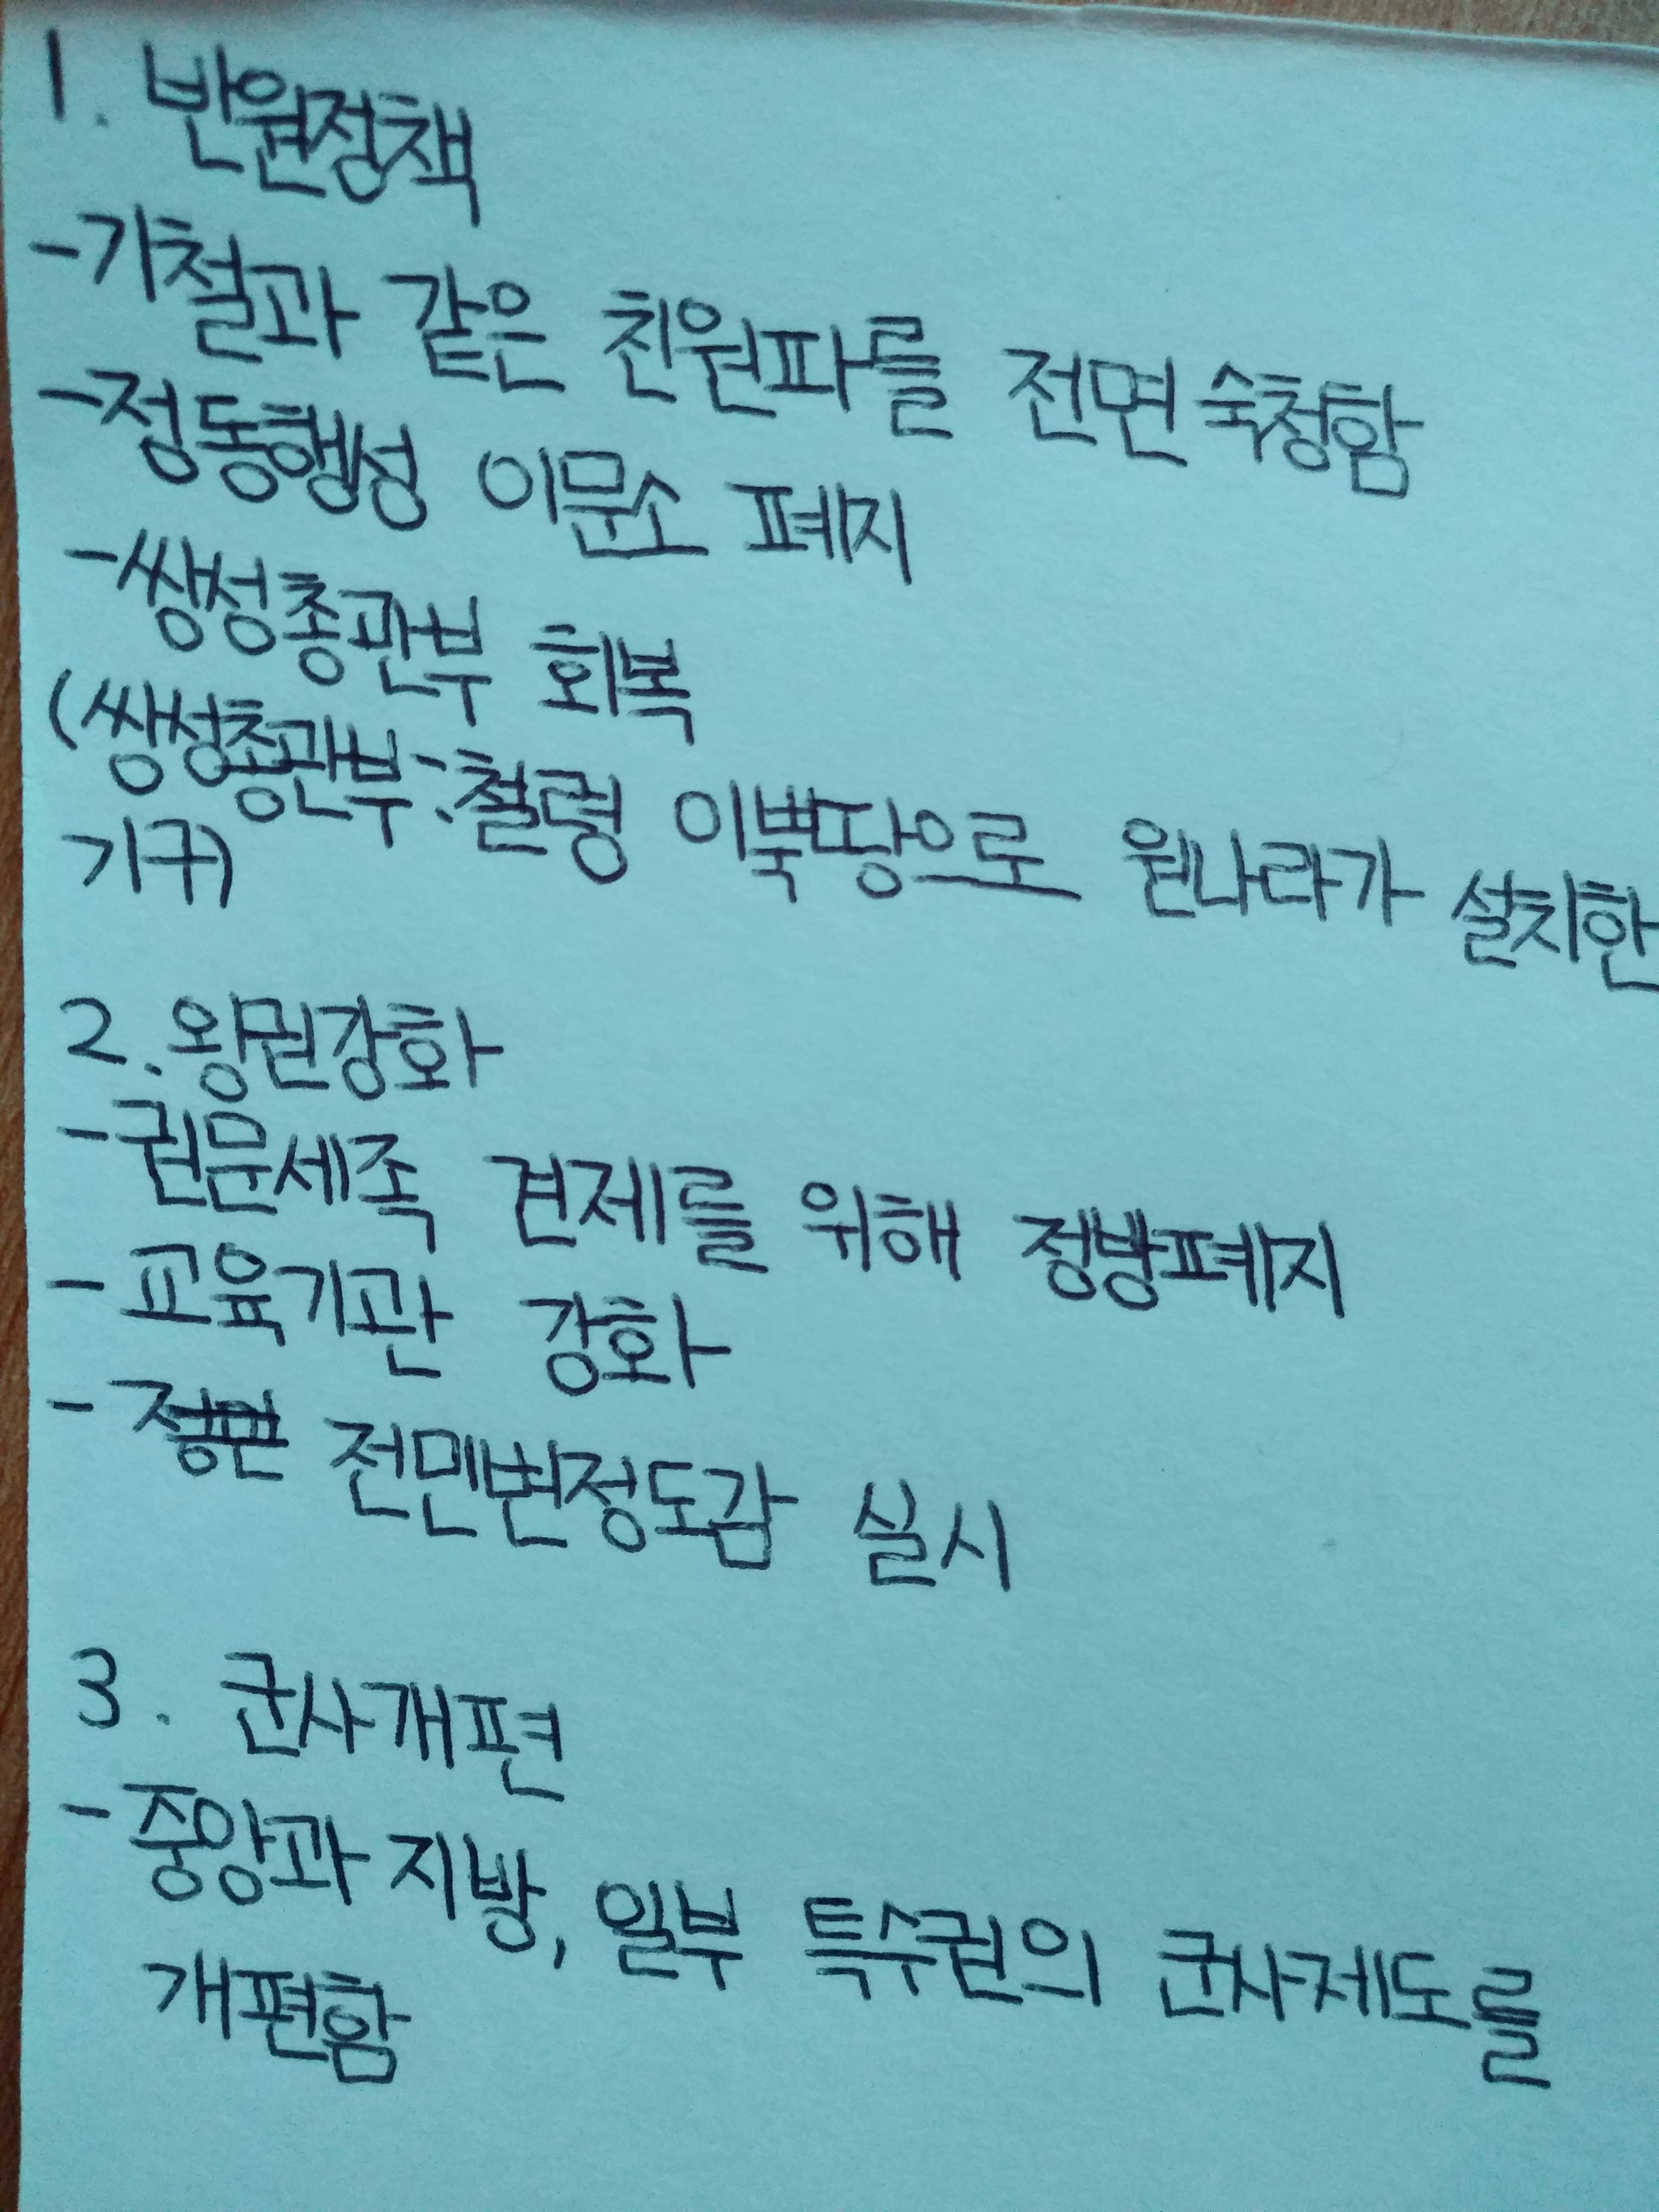 1. 반원정책
-기철과 같은 친원파를 전면 숙청함
-정동행성 이문소 폐지
-쌍성총관부 회복
(쌍성총관부:철령 이북땅으로 원나라가 설치한
기구)
2. 왕권강화
-권문세족 견제를 위해 정방폐지
- 교육기관 강화
- 전민변정도감 실시
3. 군사개편
-중앙과 지방, 일부 특수권의 군사제도를
개편함